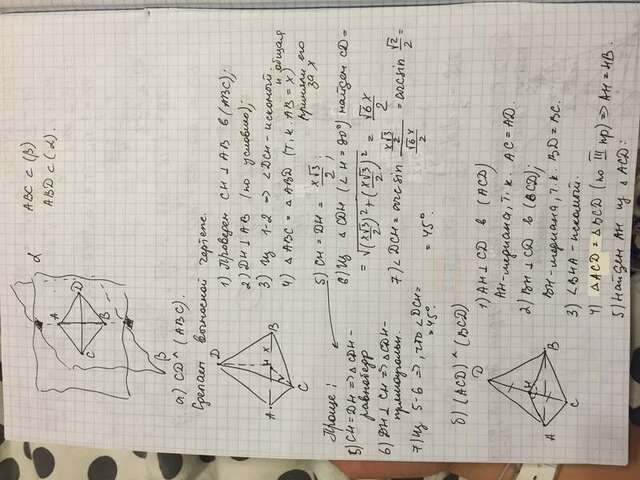 α
ABC ⊂ (β)
ABD ⊂ (α).
A
C
D
B
β
а) CD ^ (ABC).
Сделаем выносной чертеж.
D
A
H
x
B
C
1) Проведем CH ⊥ AB в (ABC);
2) DH ⊥ AB (по условию);
3) Из 1-2 => ∠DCH - искомый.
4) △ABC = △ABD (т.к. AB = x) и общая
приняли его
за x
5) CH = DH = x√3/2;
6) Из △CDH (∠H = 90°) найдем CD =
= √((x√3/2)² + (x√3/2)²) = √6x/2
7) ∠DCH = arcsin (x√3/2)/(√6x/2) = arcsin √2/2 =
= 45°.
Проще:
5) CH = DH => △CDH -
равнобедр
6) DH ⊥ CH => △CDH -
прямоугольн.
7) Из 5-6 =>, что ∠DCH =
= 45°.
б) (ACD) ^ (BCD)
D
H
A
B
C
1) AH ⊥ CD в (ACD)
AH - медиана, т.к. AC = AD.
2) BH ⊥ CD в (BCD);
BH - медиана, т.к. BD = BC.
3) ∠BHA - искомый.
4) △ACD = △BCD (по III пр) => AH = HB.
5) Найдем AH из △ACD: